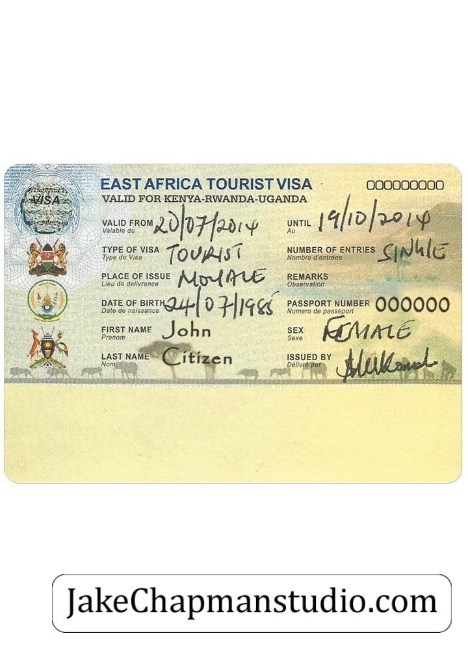 EAST AFRICA TOURIST VISA 000000000
VISA
VALID FOR KENYA-RWANDA-UGANDA
VALID FROM 20/07/2014 UNTIL 19/10/2014
Valable du Au
TYPE OF VISA TOURIST NUMBER OF ENTRIES SINGLE
Type de Visa Nombre d'entrees
PLACE OF ISSUE MOYALE REMARKS
Lieu de delivrance Observation
DATE OF BIRTH 24/07/1985 PASSPORT NUMBER 000000
Date de naissance Numero de passeport
FIRST NAME John SEX FEMALE
Prenom Sexe
LAST NAME Citizen ISSUED BY
Nom Délivré par
JakeChapmanstudio.com